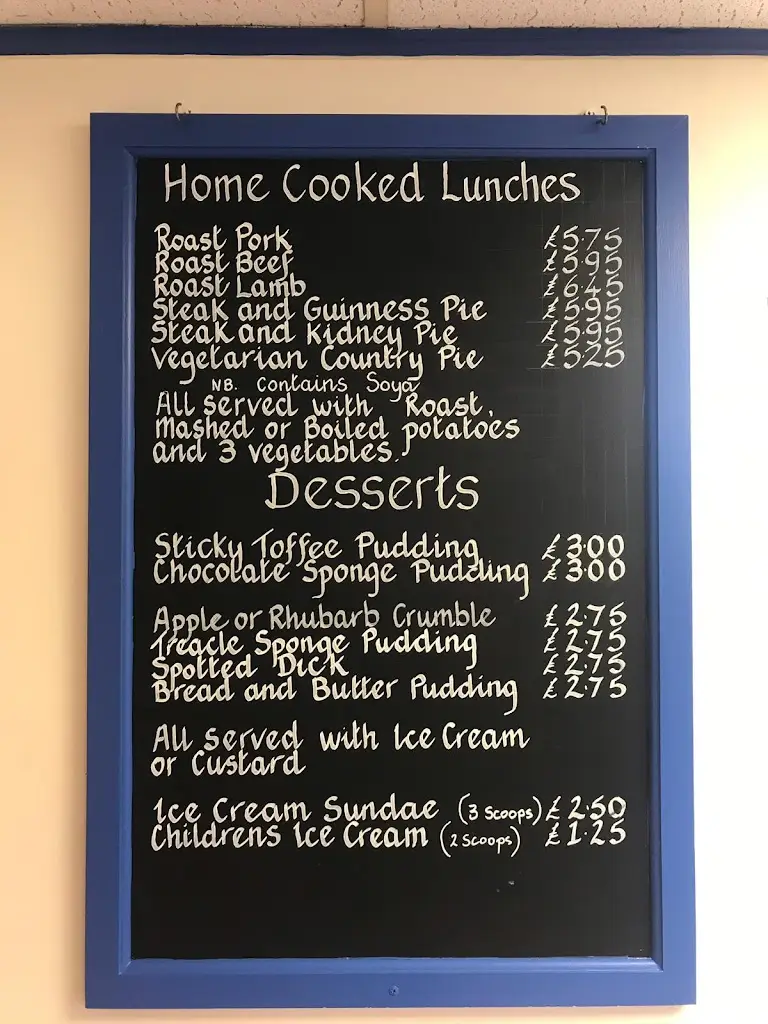 Home Cooked Lunches
Roast Pork £5.75
Roast Beef £5.95
Roast Lamb £6.45
Steak and Guinness Pie £5.95
Steak and Kidney Pie £5.95
Vegetarian Country Pie £5.25
NB. Contains Soya
All served with Roast,
Mashed or Boiled potatoes
and 3 vegetables.
Desserts
Sticky Toffee Pudding £3.00
Chocolate Sponge Pudding £3.00
Apple or Rhubarb Crumble £2.75
Treacle Sponge Pudding £2.75
Spotted Dick £2.75
Bread and Butter Pudding £2.75
All served with Ice Cream
or Custard
Ice Cream Sundae (3 Scoops) £2.50
Childrens Ice Cream (2 Scoops) £1.25